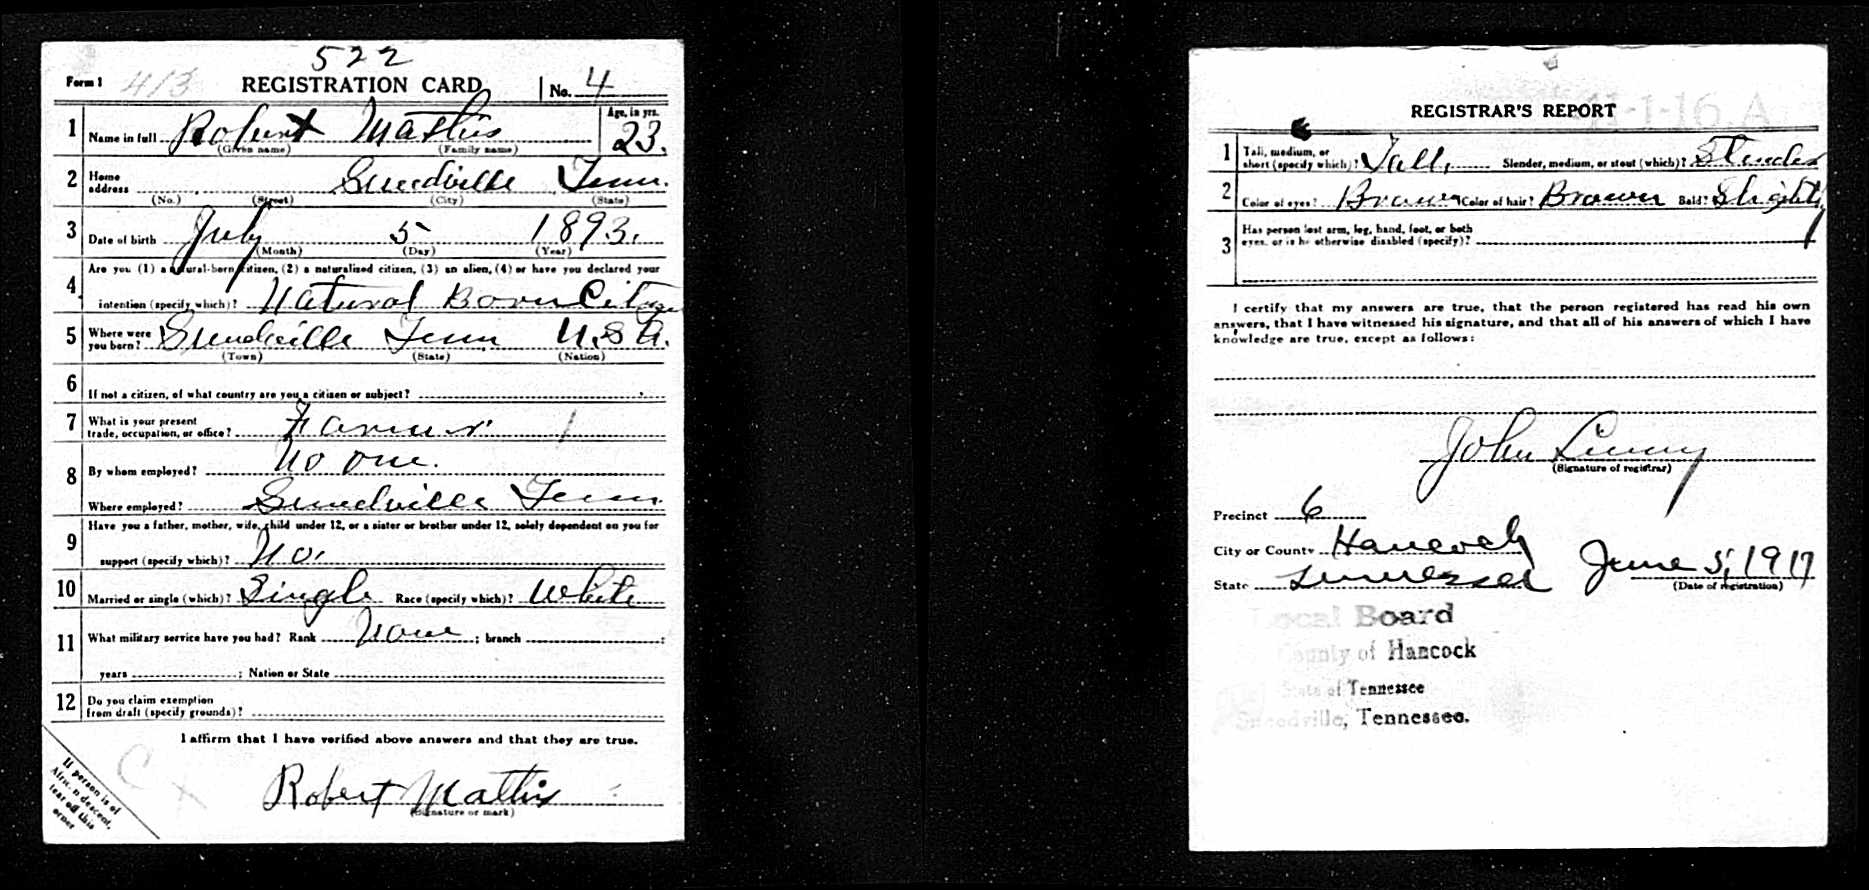 522
Form 1 413 REGISTRATION CARD No. 4
1 Name in full Robert Mathis Age, in yrs. 23.
(Given name) (Family name)
2 Home address Sneedville Tenn.
(No.) (Street) (City) (State)
3 Date of birth July 5 1893.
(Month) (Day) (Year)
4 Are you (1) a natural-born citizen, (2) a naturalized citizen, (3) an alien, (4) or have you declared your
intention (specify which)? Natural Born Citizen
5 Where were you born? Sneedville Tenn U.S.A.
(Town) (State) (Nation)
6 If not a citizen, of what country are you a citizen or subject?
7 What is your present trade, occupation, or office? Farmer
8 By whom employed? No one.
Where employed? Sneedville Tenn.
9 Have you a father, mother, wife, child under 12, or a sister or brother under 12, solely dependent on you for
support (specify which)? No.
10 Married or single (which)? Single Race (specify which)? White
11 What military service have you had? Rank None ; branch ;
years ; Nation or State
12 Do you claim exemption from draft (specify grounds)?
I affirm that I have verified above answers and that they are true.
Robert Mathis
(Signature or mark)
If person is of
African descent,
tear off this
corner
C x
41-1-16. A
REGISTRAR'S REPORT
1 Tall, medium, or short (specify which)? Tall. Slender, medium, or stout (which)? Slender
2 Color of eyes? Brown Color of hair? Brown Bald? Slightly
3 Has person lost arm, leg, hand, foot, or both
eyes, or is he otherwise disabled (specify)?
I certify that my answers are true, that the person registered has read his own
answers, that I have witnessed his signature, and that all of his answers of which I have
knowledge are true, except as follows:
John
(Signature of registrar)
Precinct 6
City or County Hancock June 5, 1917
State Tennessee (Date of registration)
Local Board
County of Hancock
State of Tennessee
Sneedville, Tennessee.